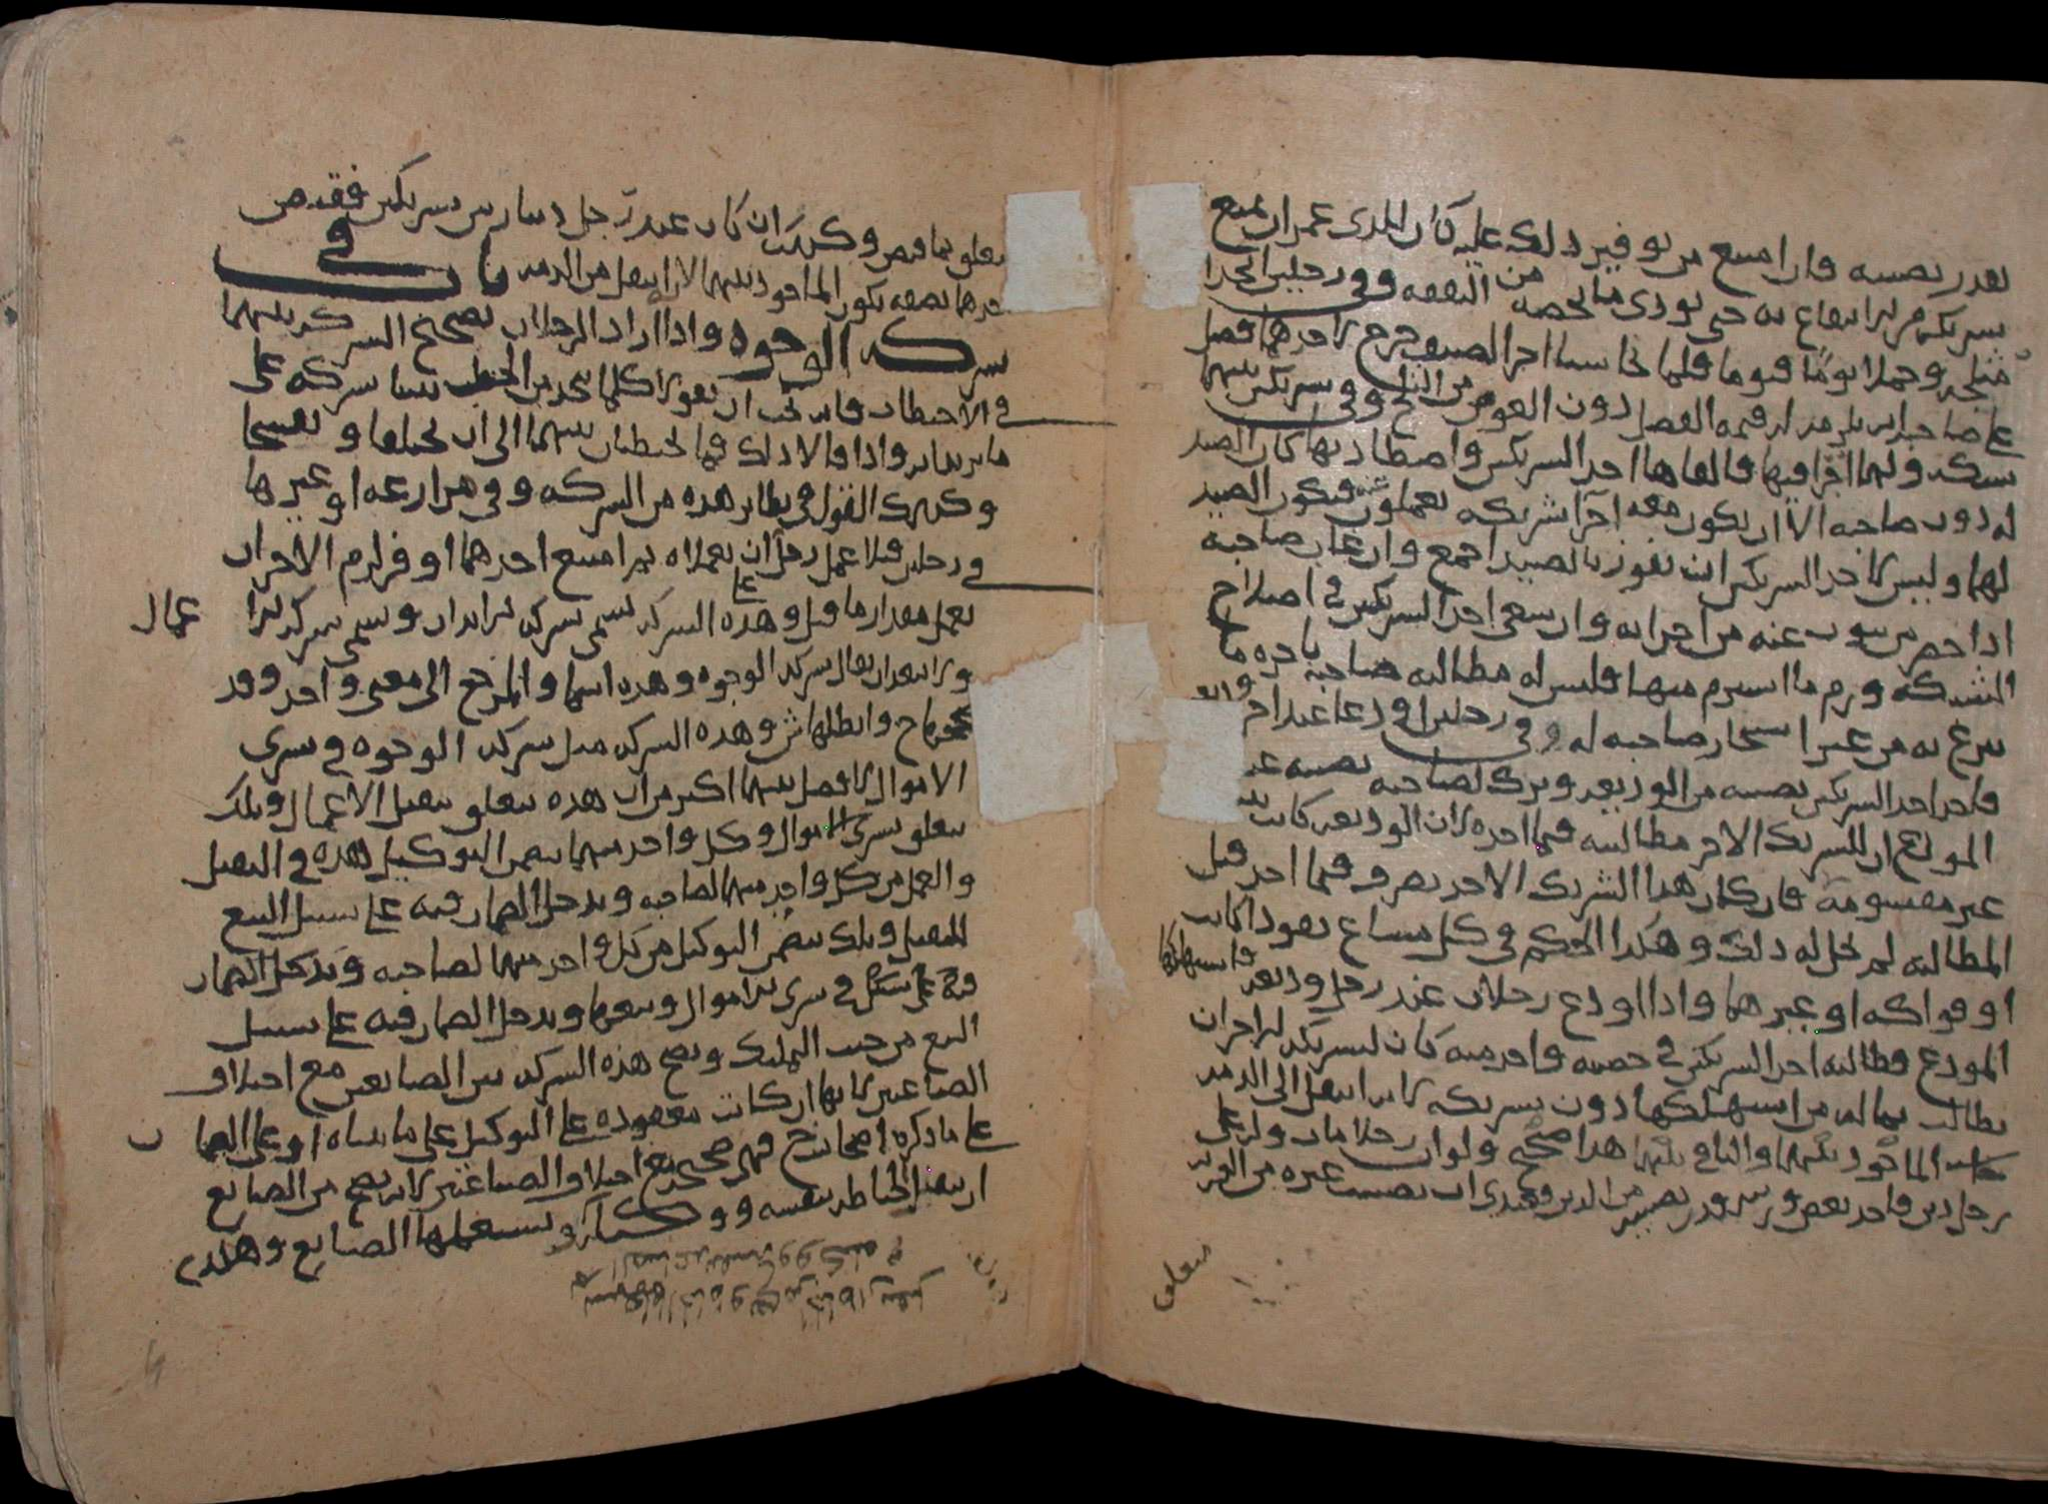 بقدر نصيبه فان امتنع من توفير ذلك عليه كان للذي عمر ان يمنع
شريكه من الانتفاع به حتى يودي ما يخصه من النفقه وفي رجلين اتخذا
وحملا يوما فيوما فلما تحاسبا اخر الصيف خرج لاحدهما فضل
على صاحبه انه يلزمه له قيمه الفضل دون العوض من الثلج وفي شريكين بينهما
شبكه ولهما اجرا فيها فالقاها احد الشريكين واصطاد بها كان الصيد
له دون صاحبه الا ان يكون معه اجرا شريكه يعملون معه فيكون الصيد
لهما وليس لاحد الشريكين ان يفوز بالصيد اجمع وان غاب صاحبه
اذا حضر من ينوب عنه من اجرايه وان سعى احد الشريكين في اصلاح
الشبكه ورم ما استرم منها فليس له مطالبه صاحبه باجره ما
تبرع به من غير استيجار صاحبه له وفي رجلين اودعا عند اخر وديعه
فاخذ احد الشريكين نصيبه من الوديعه وترك لصاحبه نصيبه عند
المودع ان للشريك الاخر مطالبته فيما اخذه لان الوديعه كانت
غير مقسومة فان كان هذا الشريك الاخذ تصرف فيما اخذ قبل
المطالبه لم يحل له ذلك وهكذا الحكم في كل مشاع نقودا كانت
او فواكه او غيرهما واذا اودع رجلان عند رجل وديعه فاستهلكها
المودع فطالبه احد الشريكين في حصته واخذ منه كان لشريكه الاخر ان
يطالب بماله من استهلكها دون شريكه لانه انتقل الى الذمه
الماخوذ بينهما والباقي بينهما هذا صحيح ولو ان رجلا مات وله على
رجل دين فاخذ بعض ورثته قدر نصيبه من الدين فعندي ان نصيب غيره من الورثه
متعلق
يتعلق بما قبض وكذلك ان كان عند رجل دينار بين شريكين فقبض
احدهما نصفه يكون الماخوذ بينهما لانه لم ينتقل من الذمه باب في
شركه الوجوه واذا اراد الرجلان تصحيح الشركه بينهما
في الاحتطاب فانه يجب ان يقولا كلما نجده من الحطب بيننا شركه على
ما يريدانه واذا قالا ذلك فما يحتطبان بينهما الى ان يختلفا ويفسخا
وكذلك القول في نظاير هذه من الشركه وفي مزارعه او غيرها
في رجلين قبلا عمل رجل ان يعملاه ثم امتنع احدهما او فر لزم الاخر ان
يعمل مقدار ما قبل وهذه الشركه تسمى شركه الابدان وتسمى شركه الا عمال
ولا يبعد ان يقال شركه الوجوه وهذه اسما والمرجع الى معنى واحد وقد
صححها ح وابطلها ش وهذه الشركه مثل شركه الوجوه في شرى
الاموال لا فصل بينهما اكثر من ان هذه تتعلق بتقبل الاعمال وتلك
تتعلق بشرى الاموال وكل واحد منهما يتضمن التوكيل هذه في التقبل
والعمل من كل واحد منهما لصاحبه ويدخل الضمان فيه على سبيل التبع
للتقبل وتلك تتضمن التوكيل من كل واحد منهما لصاحبه ويدخل الضمان
فيه على في شرى الاموال وبيعها ويدخل الضمان فيه على سبيل
التبع من حيث التمليك وتصح هذه الشركه بين الصانعين مع اختلاف
الصناعتين لانها ان كانت معقوده على التوكيل على ما بيناه او على الضمان
على ما ذكره اصحاب ح فهي صحيحه مع اختلاف الصناعتين لانه يصح من الصانع
ان يتقبل الخياطه بنفسه و ويستعملها الصانع وهذه